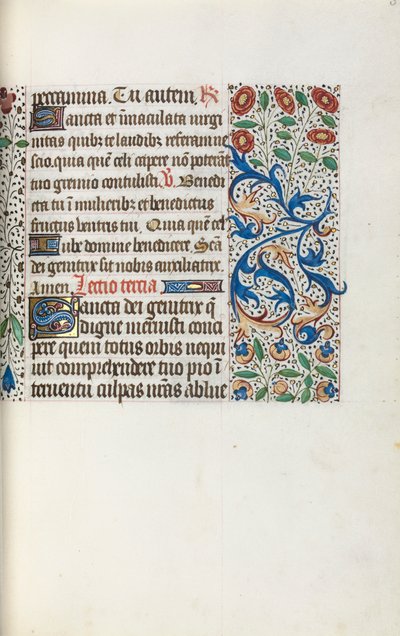 peccamina. Tu autem. R
Sancta et i̅maculata virgi
nitas quibz te laudibz referam ne
scio. quia que̅ celi cap̲e no̅ poterāt
tuo gremio contulisti. V. Benedi
cta tu i̅ mulieribz et benedictus
fructus ventris tui. Quia que̅ cel
Iube domine benedicere. Sc̅a
dei genitrix sit nobis auxiliatrix.
Amen. Lectio tercia
Sancta dei genitrix q̅
digne meruisti conci
pere quem totus orbis nequi
uit comprehendere tuo pio i̅
teruentu culpas n̅ras ablue